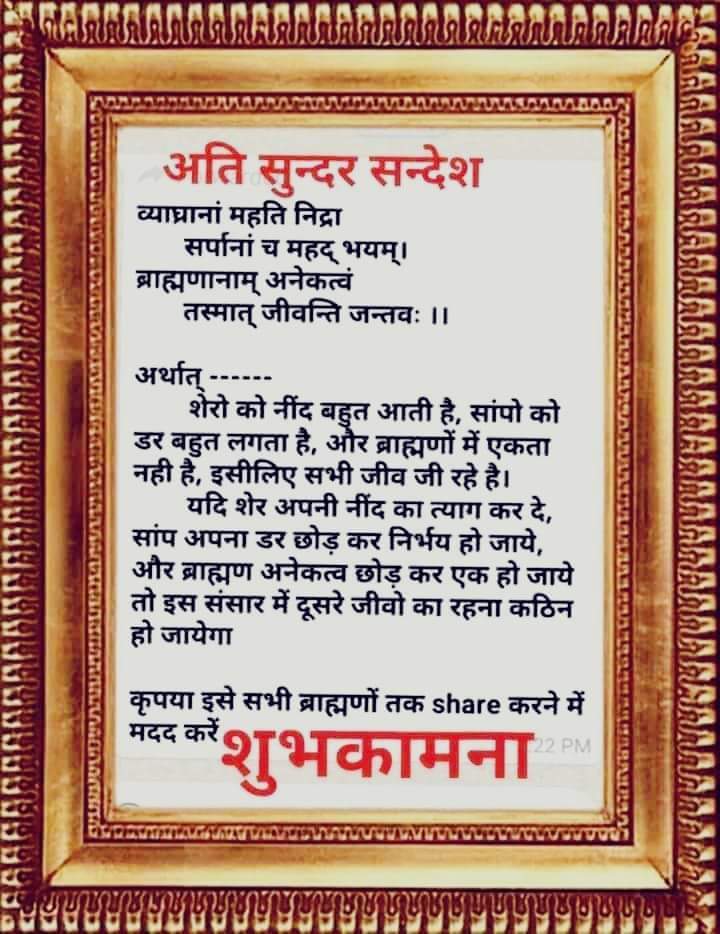 अति सुन्दर सन्देश
व्याघ्रानां महति निद्रा
सर्पानां च महद् भयम्।
ब्राह्मणानाम् अनेकत्वं
तस्मात् जीवन्ति जन्तवः ।।
अर्थात् ------
शेरो को नींद बहुत आती है, सांपो को
डर बहुत लगता है, और ब्राह्मणों में एकता
नही है, इसीलिए सभी जीव जी रहे है।
यदि शेर अपनी नींद का त्याग कर दे,
सांप अपना डर छोड़ कर निर्भय हो जाये,
और ब्राह्मण अनेकत्व छोड़ कर एक हो जाये
तो इस संसार में दूसरे जीवो का रहना कठिन
हो जायेगा
कृपया इसे सभी ब्राह्मणों तक share करने में
मदद करें
शुभकामना
22 PM